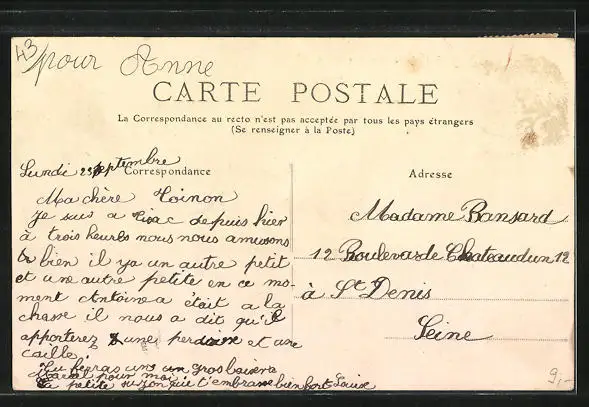 43
pour Anne
CARTE POSTALE
La Correspondance au recto n'est pas acceptée par tous les pays étrangers
(Se renseigner à la Poste)
Lundi 23 septembre
Correspondance
Ma chère Toinon
je suis a depuis hier
à trois heures nous nous amusons
bien il ya un autre petit
et une autre petite en ce mo-
ment Antoine a était a la
chasse il nous a dit qu'il
apporterez une perdure et une
caille.
Tu feras un gros baisers
pour moi
ta petite qui t'embrasse bien fort Louise
Adresse
Madame Bansard
12 Boulevarde Chateaudun 12
à St Denis
Seine
9,-